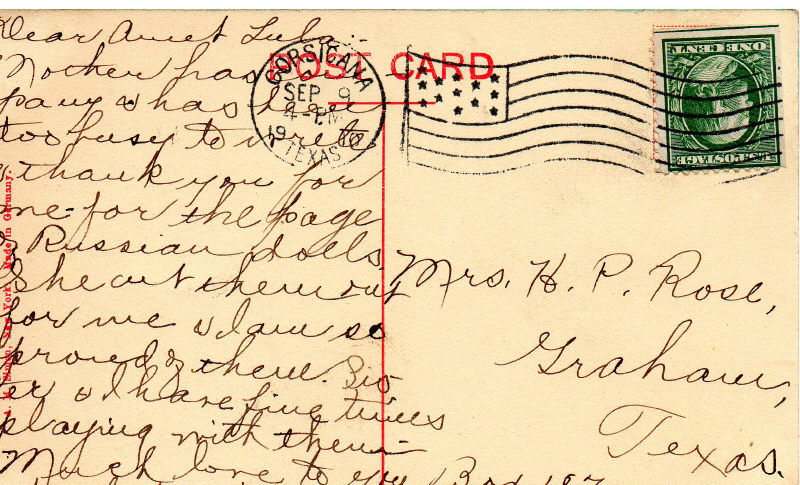 Dear Aunt Lula:-
Mother has
too busy to write
& thank you for
me for the page
& Russian dolls,
She cut them out
for me & I am so
proud of them. Sis
er & I have fine times
playing with them-
Much love to you
POST CARD
CORSICANA
SEP 9
4-PM
19 10
TEXAS
ONE CENT
U.S. POSTAGE
Mrs. H. P. Rose,
Graham,
Texas.
New York. Made in Germany.